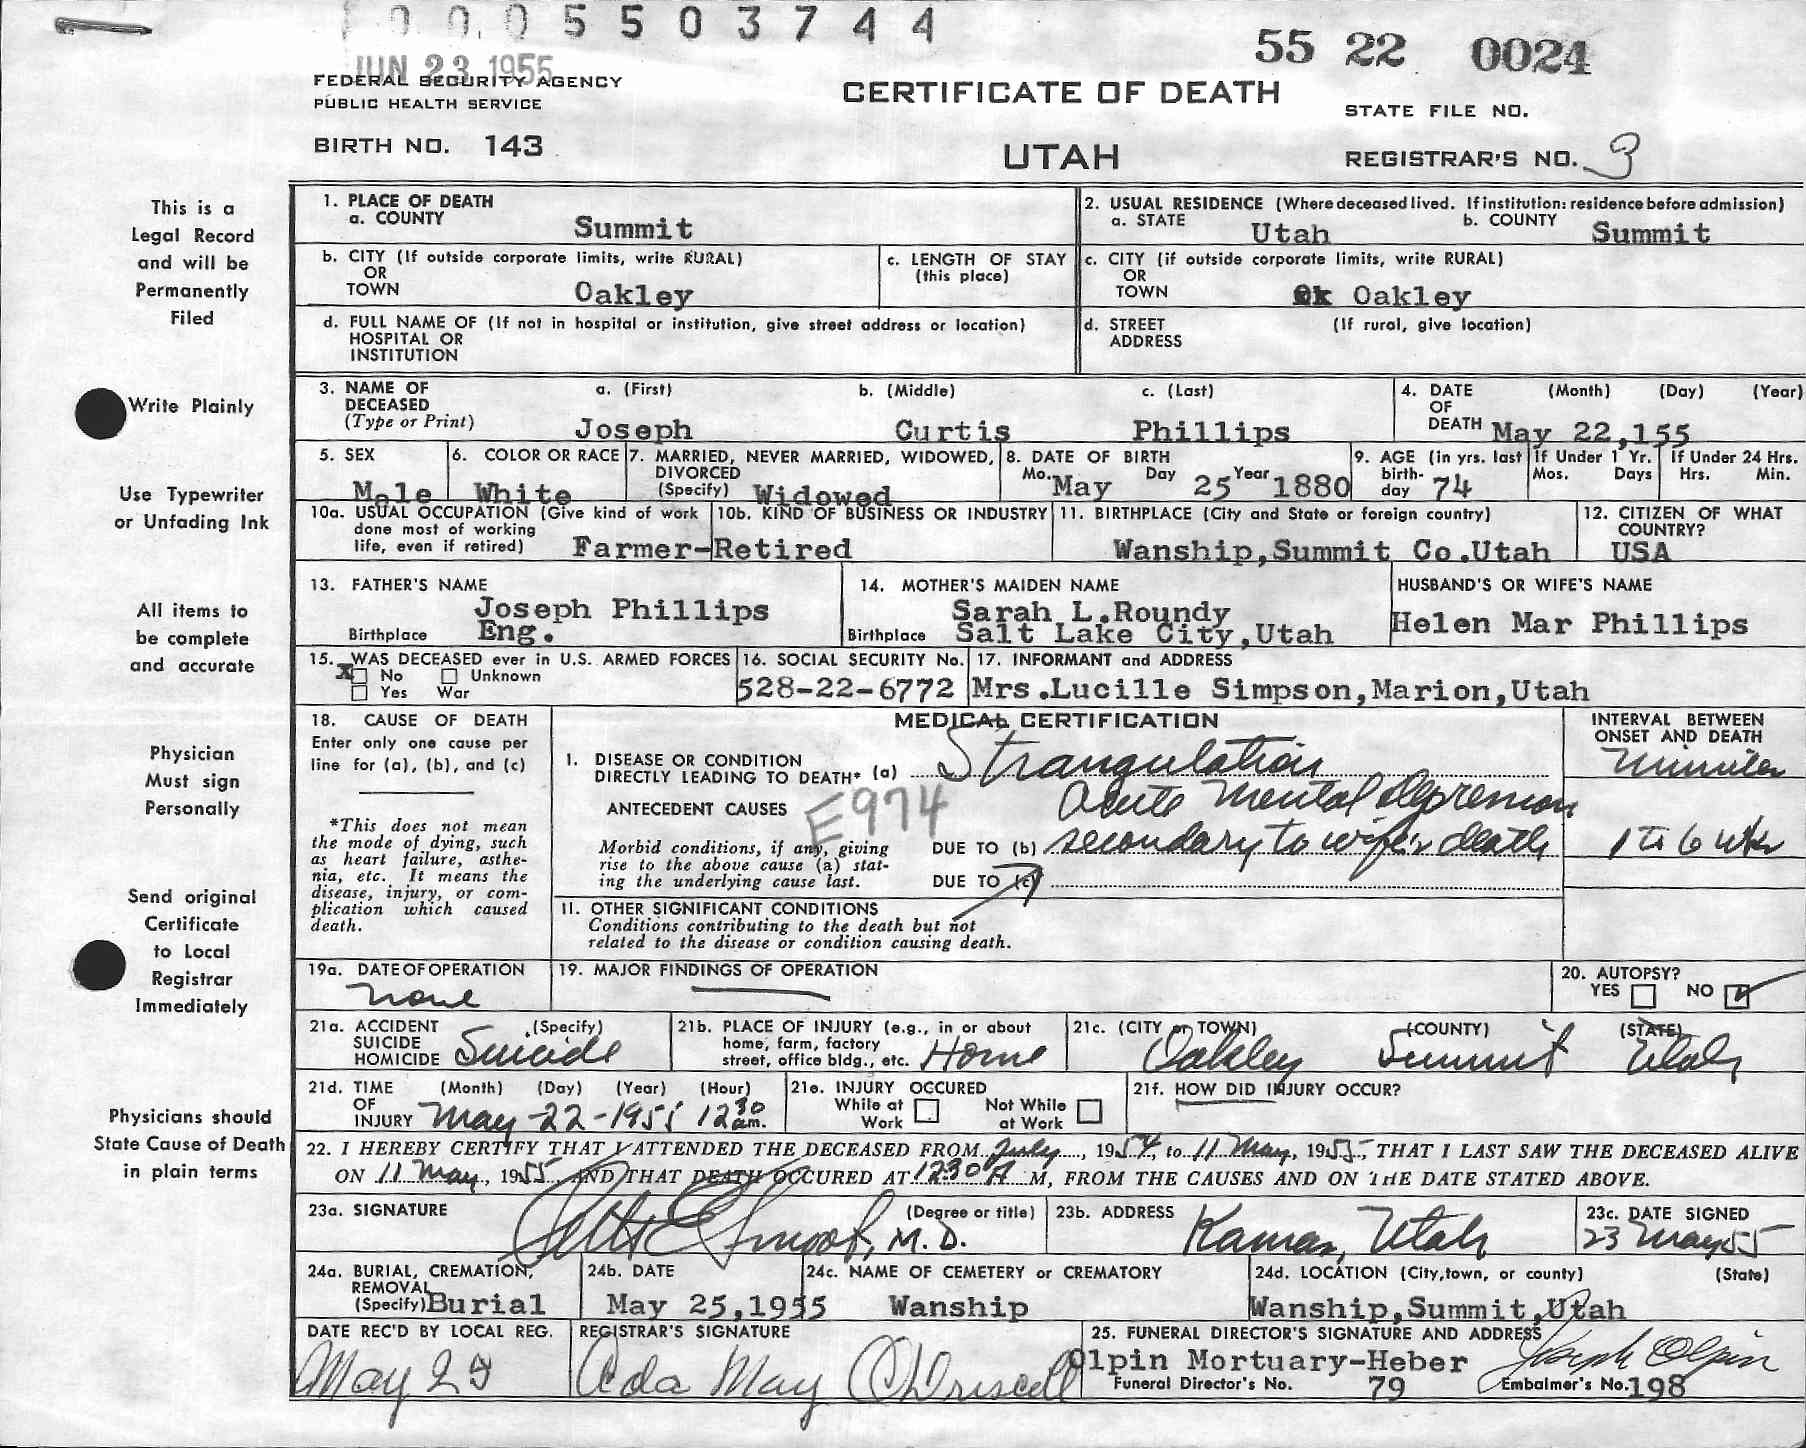 0005503744
JUN 23 1955
55 22 0024
FEDERAL SECURITY AGENCY
PUBLIC HEALTH SERVICE
CERTIFICATE OF DEATH
STATE FILE NO.
BIRTH NO. 143
UTAH
REGISTRAR'S NO. 3
This is a
Legal Record
and will be
Permanently
Filed
Write Plainly
Use Typewriter
or Unfading Ink
All items to
be complete
and accurate
Physician
Must sign
Personally
Send original
Certificate
to Local
Registrar
Immediately
Physicians should
State Cause of Death
in plain terms
1. PLACE OF DEATH
a. COUNTY Summit
2. USUAL RESIDENCE (Where deceased lived. If institution: residence before admission)
a. STATE Utah b. COUNTY Summit
b. CITY (If outside corporate limits, write RURAL)
OR
TOWN Oakley
c. LENGTH OF STAY
(this place)
c. CITY (if outside corporate limits, write RURAL)
OR
TOWN Oakley
d. FULL NAME OF (If not in hospital or institution, give street address or location)
HOSPITAL OR
INSTITUTION
d. STREET (If rural, give location)
ADDRESS
3. NAME OF a. (First) b. (Middle) c. (Last)
DECEASED
(Type or Print) Joseph Curtis Phillips
4. DATE (Month) (Day) (Year)
OF
DEATH May 22,155
5. SEX
Male
6. COLOR OR RACE
White
7. MARRIED, NEVER MARRIED, WIDOWED,
DIVORCED
(Specify) Widowed
8. DATE OF BIRTH
Mo. May Day 25 Year 1880
9. AGE (in yrs. last
birth-
day 74
If Under 1 Yr.
Mos. Days
If Under 24 Hrs.
Hrs. Min.
10a. USUAL OCCUPATION (Give kind of work
done most of working
life, even if retired) Farmer-Retired
10b. KIND OF BUSINESS OR INDUSTRY
11. BIRTHPLACE (City and State or foreign country)
Wanship,Summit Co.Utah
12. CITIZEN OF WHAT
COUNTRY?
USA
13. FATHER'S NAME
Joseph Phillips
Birthplace Eng.
14. MOTHER'S MAIDEN NAME
Sarah L.Roundy
Birthplace Salt Lake City,Utah
HUSBAND'S OR WIFE'S NAME
Helen Mar Phillips
15. WAS DECEASED ever in U.S. ARMED FORCES
X No Unknown
Yes War
16. SOCIAL SECURITY No.
528-22-6772
17. INFORMANT and ADDRESS
Mrs.Lucille Simpson,Marion,Utah
18. CAUSE OF DEATH
Enter only one cause per
line for (a), (b), and (c)
*This does not mean
the mode of dying, such
as heart failure, asthe-
nia, etc. It means the
disease, injury, or com-
plication which caused
death.
MEDICAL CERTIFICATION
INTERVAL BETWEEN
ONSET AND DEATH
1. DISEASE OR CONDITION
DIRECTLY LEADING TO DEATH* (a) Strangulation Minutes
ANTECEDENT CAUSES E974 Acute mental depression
Morbid conditions, if any, giving
rise to the above cause (a) stat-
ing the underlying cause last.
DUE TO (b) secondary to wife's death 1 to 6 wks
DUE TO (c)
11. OTHER SIGNIFICANT CONDITIONS
Conditions contributing to the death but not
related to the disease or condition causing death.
19a. DATE OF OPERATION
none
19. MAJOR FINDINGS OF OPERATION
20. AUTOPSY?
YES NO
21a. ACCIDENT (Specify)
SUICIDE
HOMICIDE Suicide
21b. PLACE OF INJURY (e.g., in or about
home, farm, factory
street, office bldg., etc. Home
21c. (CITY or TOWN) (COUNTY) (STATE)
Oakley Summit Utah
21d. TIME (Month) (Day) (Year) (Hour)
OF
INJURY May-22-1955 12 30 am.
21e. INJURY OCCURED
While at Not While
Work at Work
21f. HOW DID INJURY OCCUR?
22. I HEREBY CERTIFY THAT I ATTENDED THE DECEASED FROM July, 1954, to 11 May, 1955, THAT I LAST SAW THE DECEASED ALIVE
ON 11 May, 1955, AND THAT DEATH OCCURED AT 1230 A M, FROM THE CAUSES AND ON THE DATE STATED ABOVE.
23a. SIGNATURE (Degree or title)
M.D.
23b. ADDRESS
Kamas, Utah
23c. DATE SIGNED
23 May 55
24a. BURIAL, CREMATION,
REMOVAL
(Specify) Burial
24b. DATE
May 25,1955
24c. NAME OF CEMETERY or CREMATORY
Wanship
24d. LOCATION (City,town, or county) (State)
Wanship,Summit,Utah
DATE REC'D BY LOCAL REG.
May 25
REGISTRAR'S SIGNATURE
Ada May O'Driscoll
25. FUNERAL DIRECTOR'S SIGNATURE AND ADDRESS
Olpin Mortuary-Heber Joseph Olpin
Funeral Director's No. 79 Embalmer's No. 198